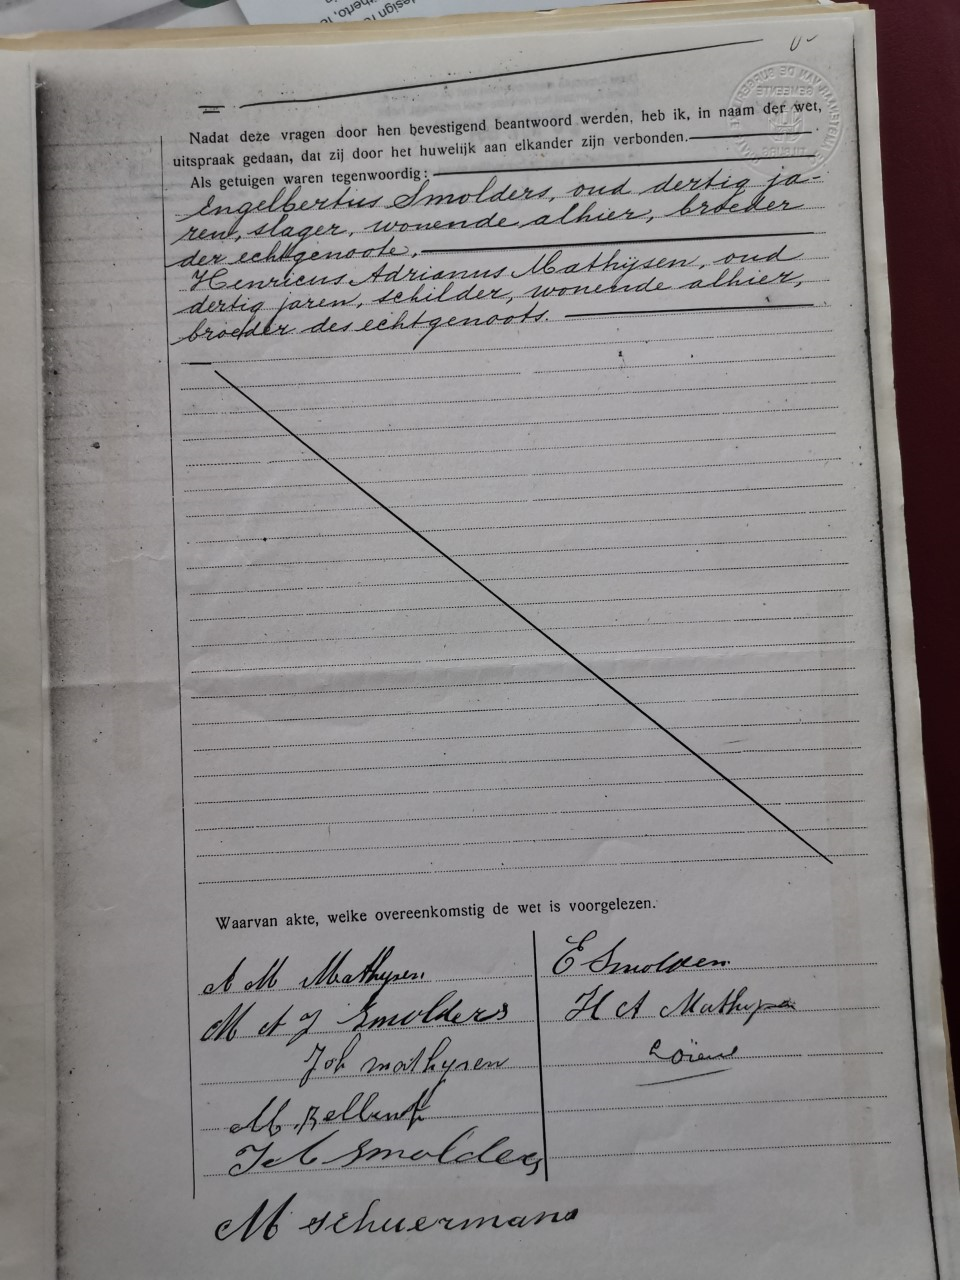 design
itherto, is
Nadat deze vragen door hen bevestigend beantwoord werden, heb ik, in naam der wet,
uitspraak gedaan, dat zij door het huwelijk aan elkander zijn verbonden.
Als getuigen waren tegenwoordig:
Engelbertus Smolders, oud dertig ja-
ren, slager, wonende alhier, broeder
der echtgenoote,
Henricus Adrianus Mathijsen, oud
dertig jaren, schilder, wonende alhier,
broeder des echtgenoots.
Waarvan akte, welke overeenkomstig de wet is voorgelezen.
A M Mathijsen
M A J Smolders
Joh mathysen
M.
J C Smolders
M Schuermans
E Smolders
H A Mathijsen